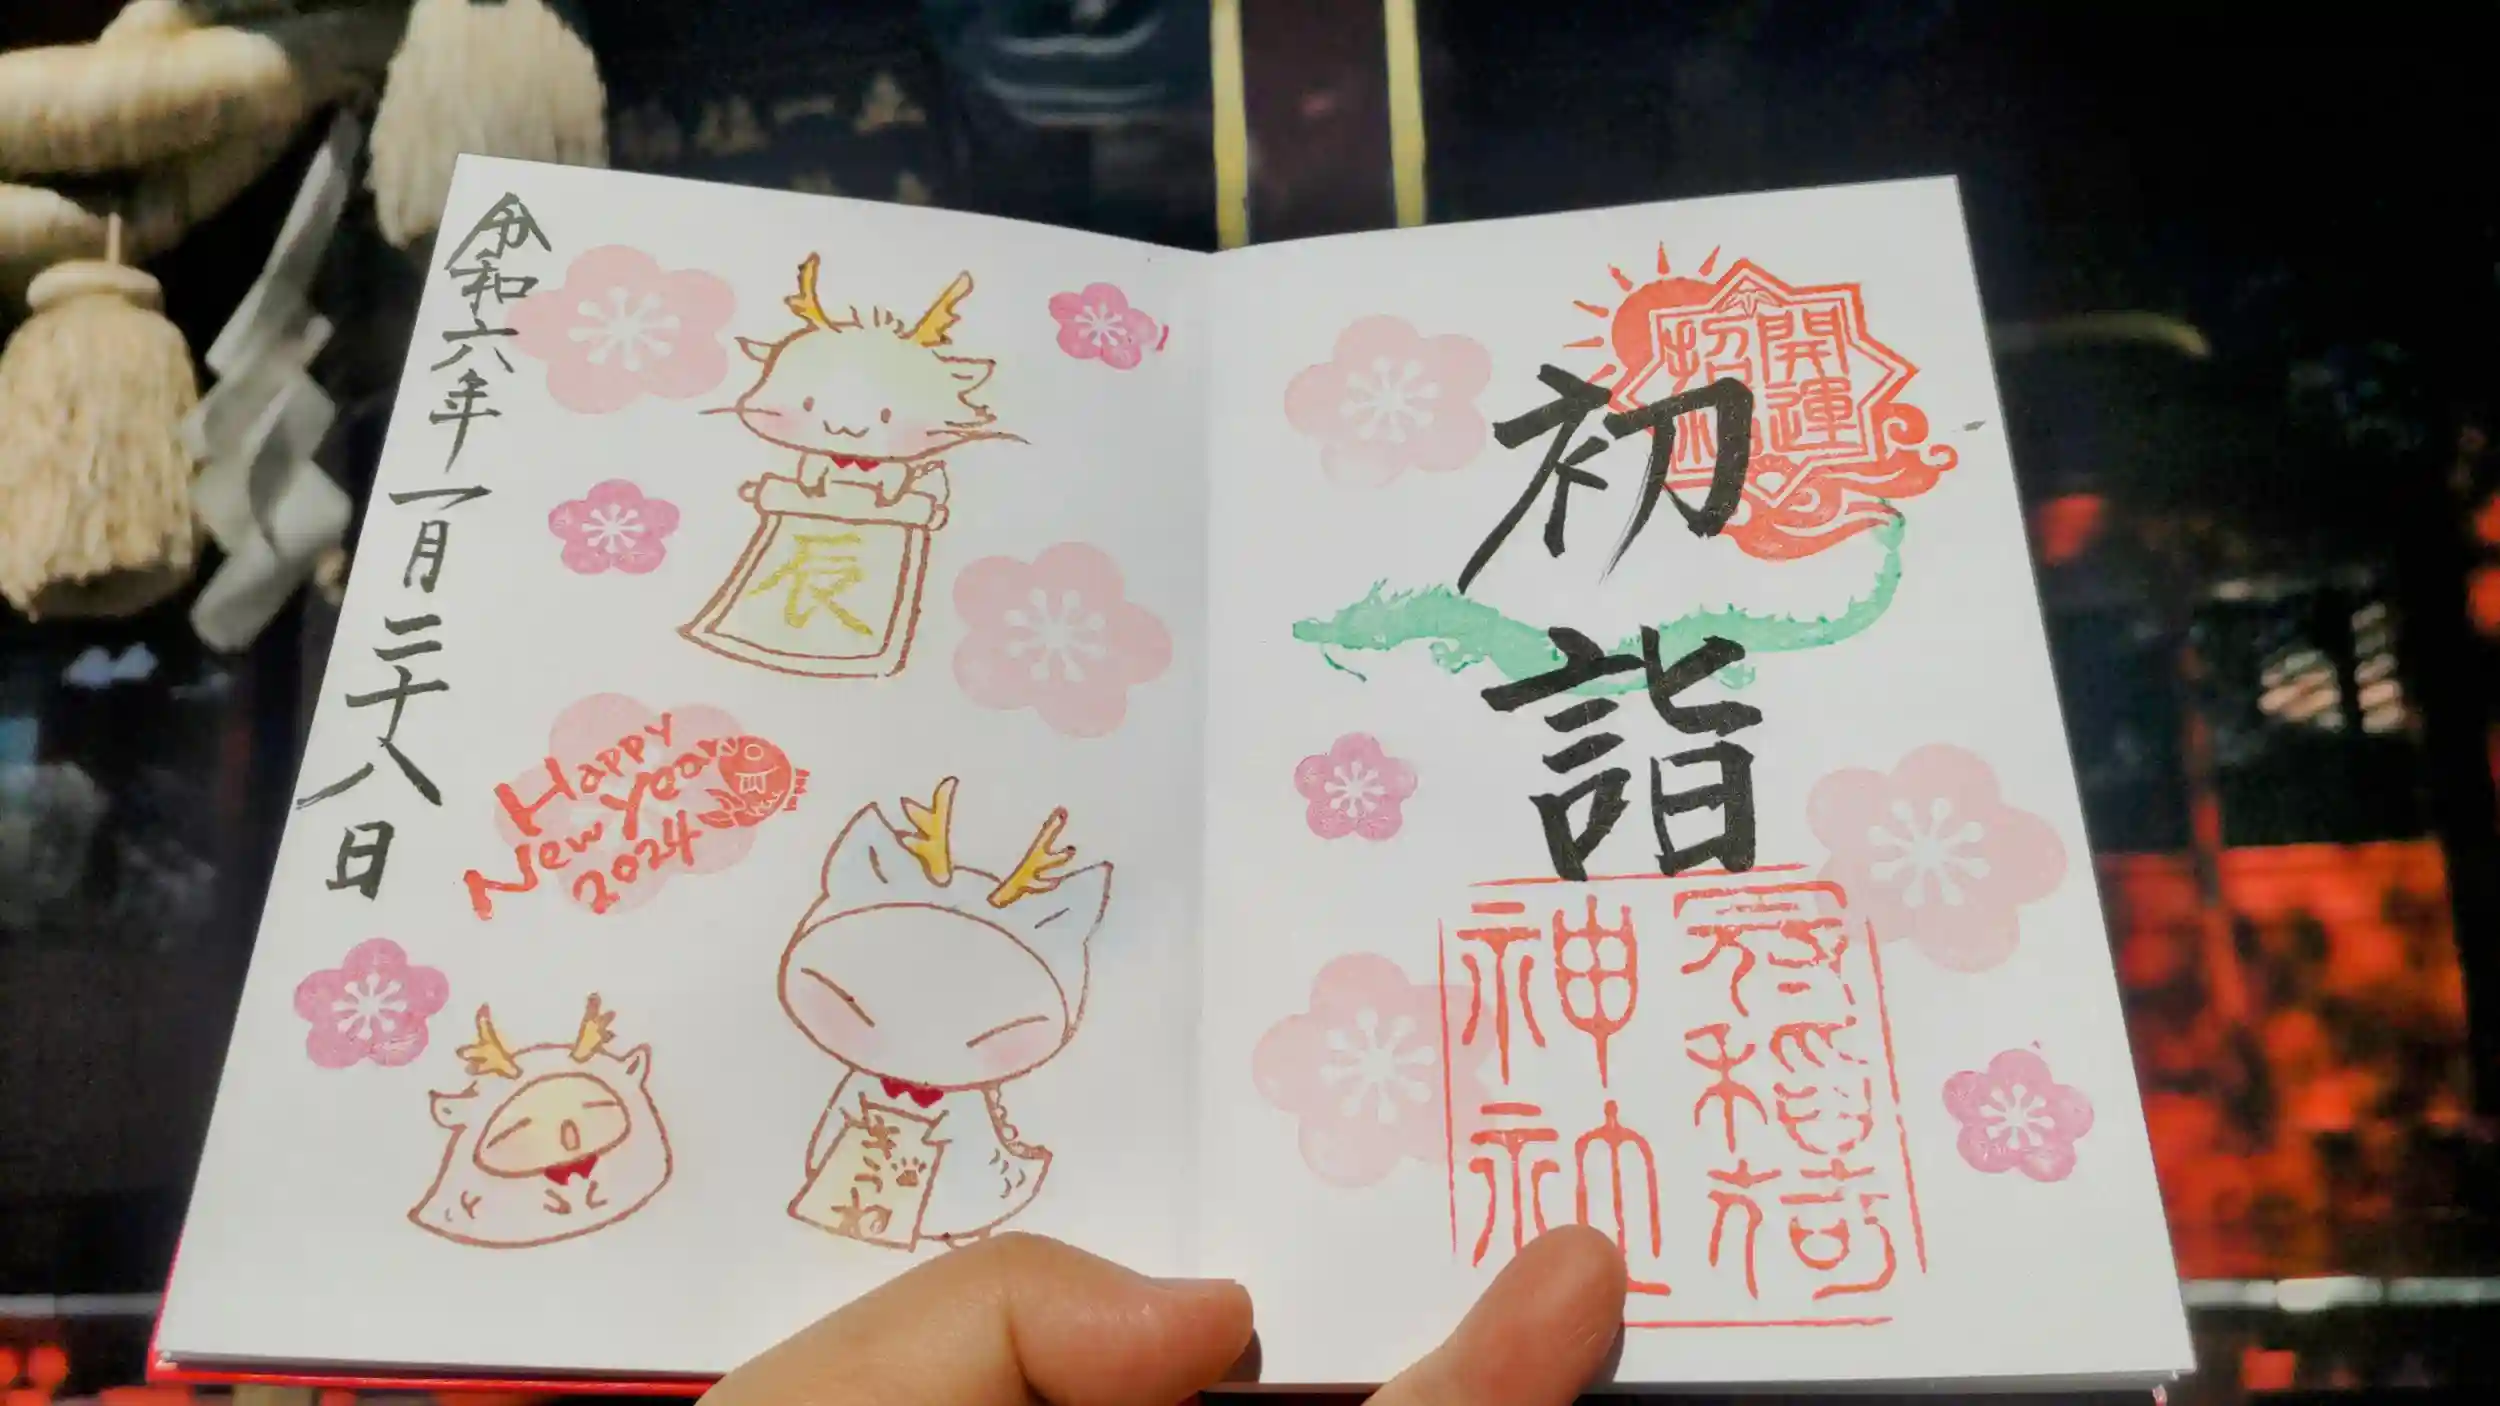 開運
招福
初詣
冠稲荷
神社
辰
Happy
New Year
2024
きつね
令和六年一月二十八日